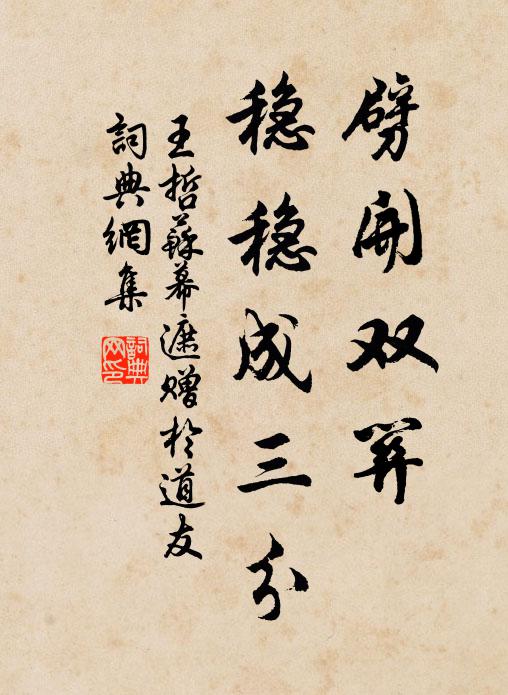 劈開双笄
稳稳成三分
王哲蘇幕遮贈於道友
詞典網集
詞典网印